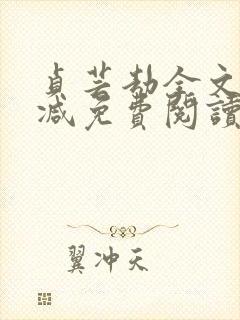 貞芸劫全文
減免費閱讀
翼冲天